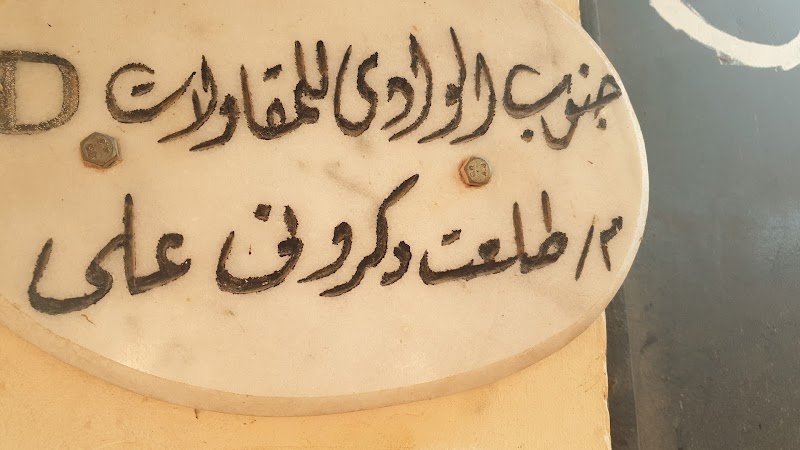 جنوب الوادى للمقاولات D
م/ طلعت دكرونى على